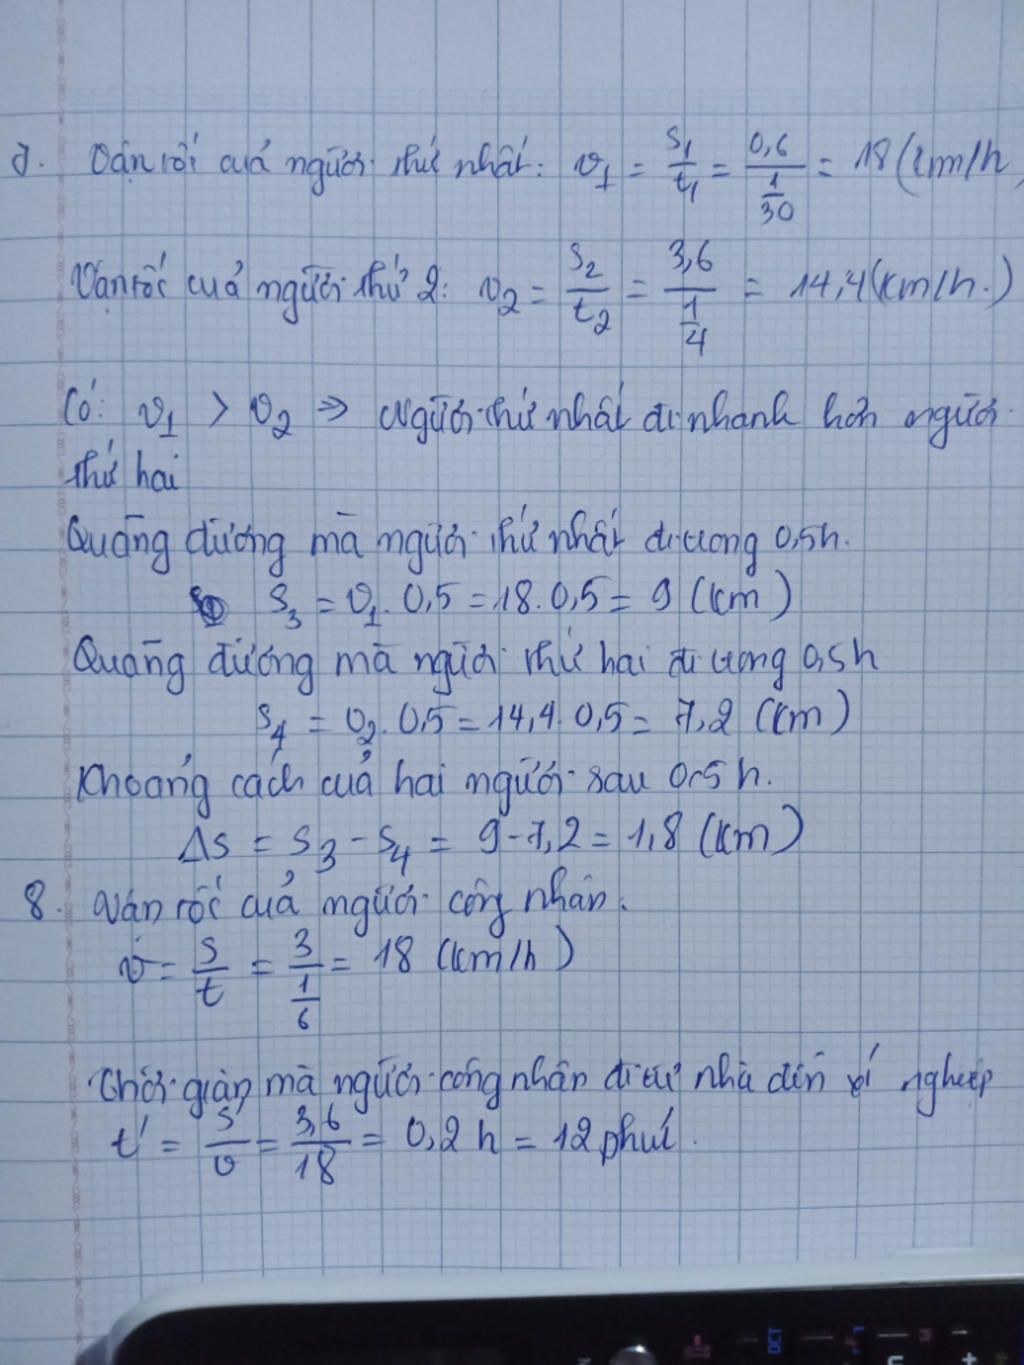 7. Vận tốc của người thứ nhất: v₁ = s₁/t₁ = 0,6/(1/30) = 18 (km/h)
Vận tốc của người thứ 2: v₂ = s₂/t₂ = 3,6/(1/4) = 14,4 (km/h.)
Có: v₁ > v₂ ⇒ Người thứ nhất đi nhanh hơn người
thứ hai
Quãng đường mà người thứ nhất đi trong 0,5h.
s₃ = v₁. 0,5 = 18. 0,5 = 9 (km)
Quãng đường mà người thứ hai đi trong 0,5h
s₄ = v₂. 0,5 = 14,4. 0,5 = 7,2 (km)
Khoảng cách của hai người sau 0,5 h.
Δs = s₃ - s₄ = 9 - 7,2 = 1,8 (km)
8. Vận tốc của người công nhân.
v = s/t = 3/(1/6) = 18 (km/h)
Thời gian mà người công nhân đi từ nhà đến xí nghiệp
t' = s/v = 3,6/18 = 0,2 h = 12 phút.
OCT